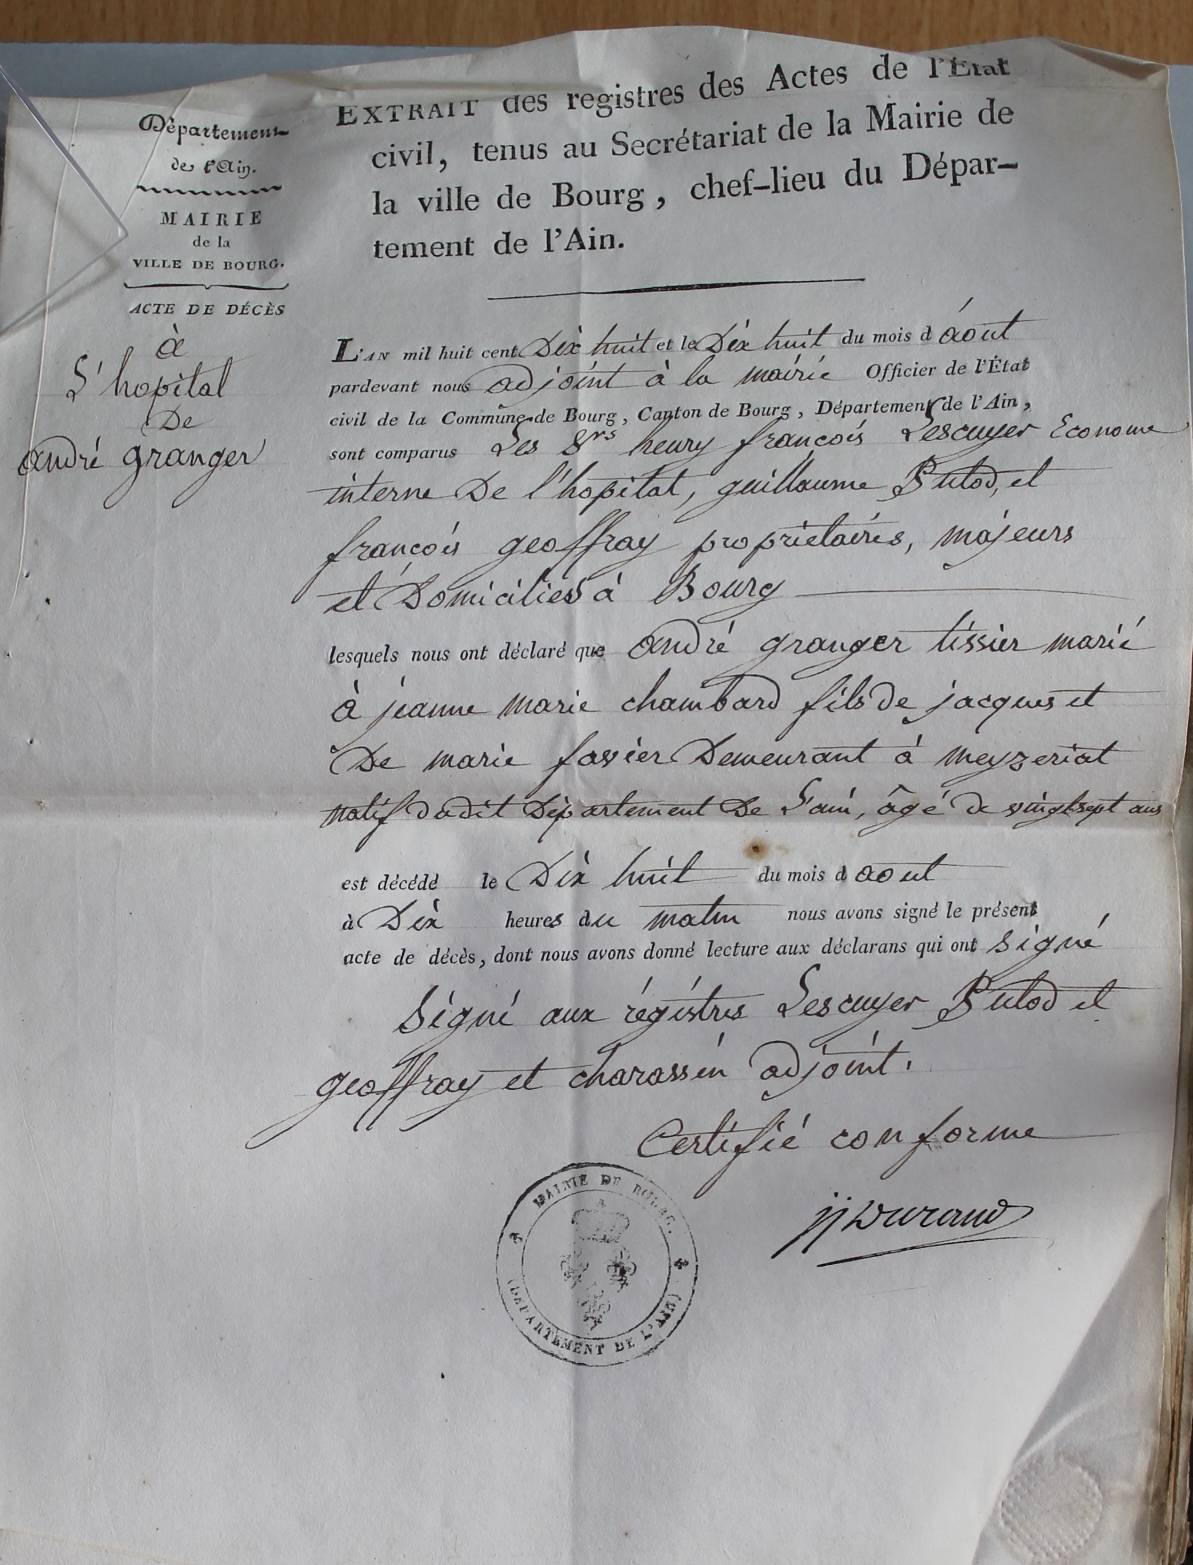 Département
de l'Ain.
MAIRIE
de la
VILLE DE BOURG.
ACTE DE DÉCÈS
à
L'hopital
De
andré granger
EXTRAIT des registres des Actes de l'État
civil, tenus au Secrétariat de la Mairie de
la ville de Bourg, chef-lieu du Dépar-
tement de l'Ain.
L'AN mil huit cent Dix huit et le Dix huit du mois d'août
pardevant nous adjoint à la mairie Officier de l'État
civil de la Commune de Bourg, Canton de Bourg, Département de l'Ain,
sont comparus Les Srs henry françois Lescuyer Econome
interne De l'hopital, guillaume Putod, et
françois geoffray propriétaires, majeurs
et Domiciliés à Bourg
lesquels nous ont déclaré que andré granger tissier marié
à jeanne marie chambard fils De jacques et
De marie favier Demeurant à meyzeriat
natif dudit Département De L'ain, âgé De vingt sept ans
est décédé le Dix huit du mois d'aout
à Dix heures du matin nous avons signé le présent
acte de décès, dont nous avons donné lecture aux déclarans qui ont signé
Signé aux régistres Lescuyer Putod et
geoffray et charassin adjoint.
Certifié conforme
jjDurand
MAIRIE DE BOURG.
(DÉPARTEMENT DE L'AIN)